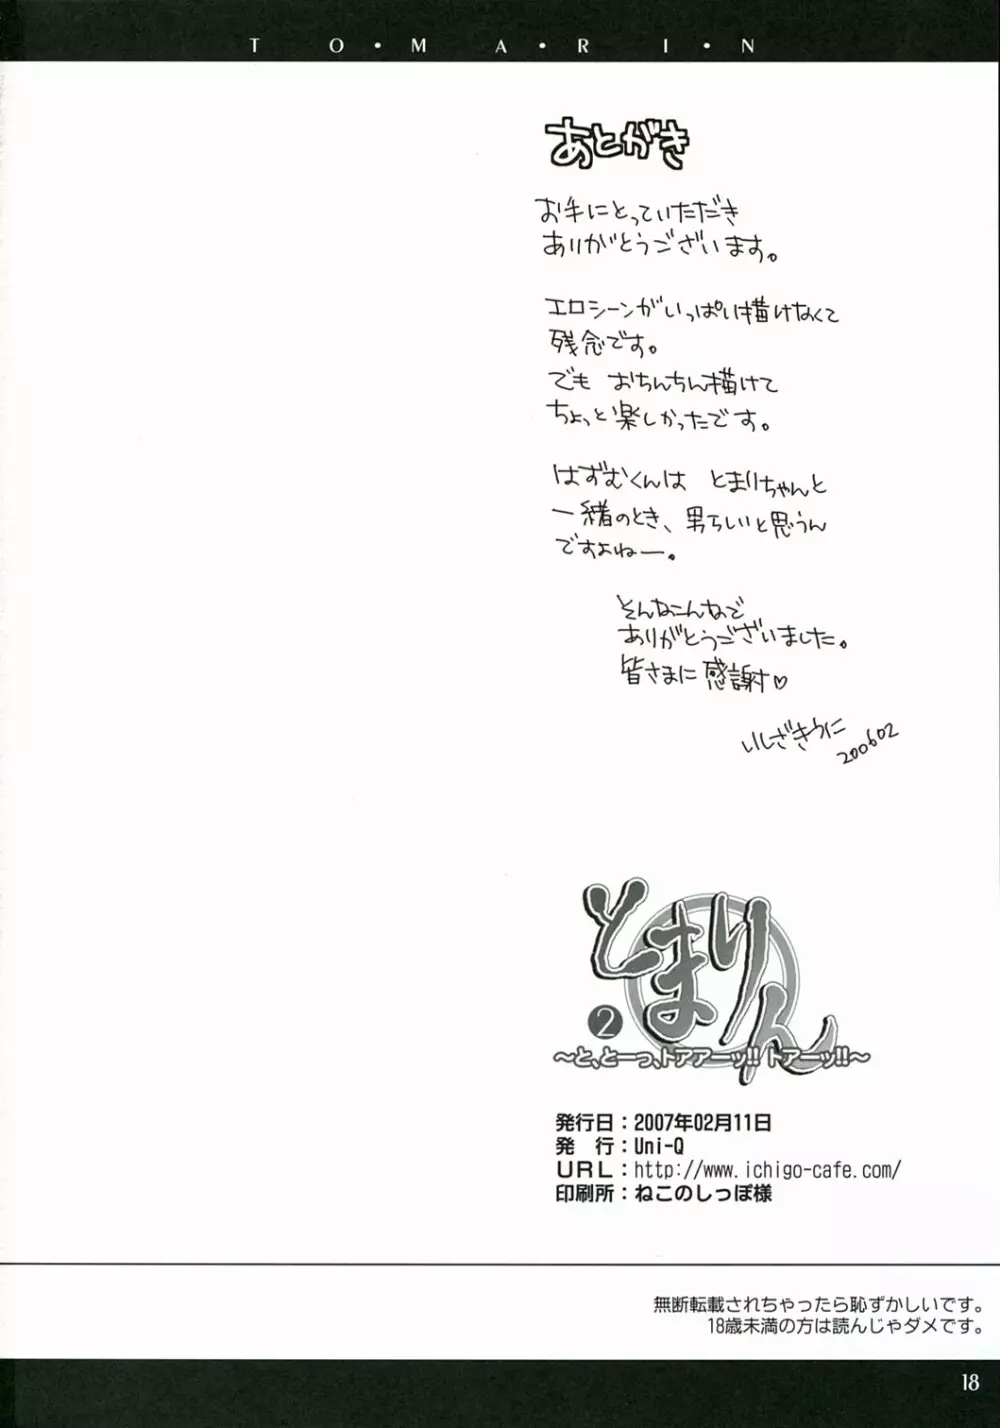 T O・M A・R I・N
あとがき
お手にとっていただき
ありがとうございます。
エロシーンがいっぱい描けなくて
残念です。
でも おちんちん描けて
ちょっと楽しかったです。
はずむくんは とまりちゃんと
一緒のとき、男らしいと思うん
ですよねー。
そんなこんなで
ありがとうございました。
皆さまに感謝♡
いしざきうに
200602
とまりん
2
〜と、とーっ、トアアーッ!! トアーッ!!〜
発行日：2007年02月11日
発　行：Uni-Q
URL：http://www.ichigo-cafe.com/
印刷所：ねこのしっぽ様
無断転載されちゃったら恥ずかしいです。
18歳未満の方は読んじゃダメです。
18